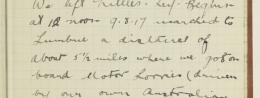 We left
at 12 noon 9.8.17 marched to
Lumbres a distance of
about 5½ miles where we got on
board Motor Lorries (driven
by our own Australian